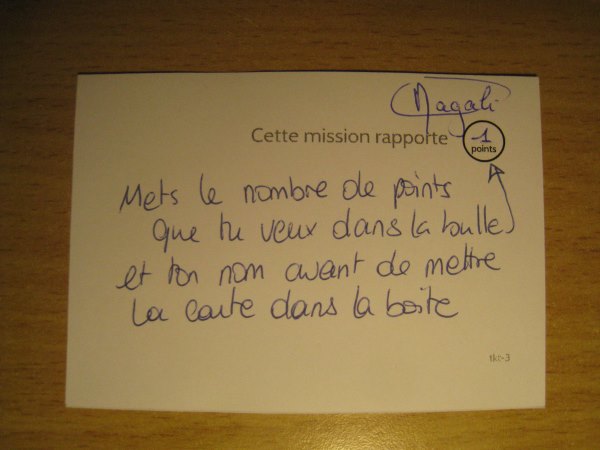 Magali
Cette mission rapporte 1 points
Mets le nombre de points
que tu veux dans la bulle
et ton nom avant de mettre
la carte dans la boîte
tkt-3